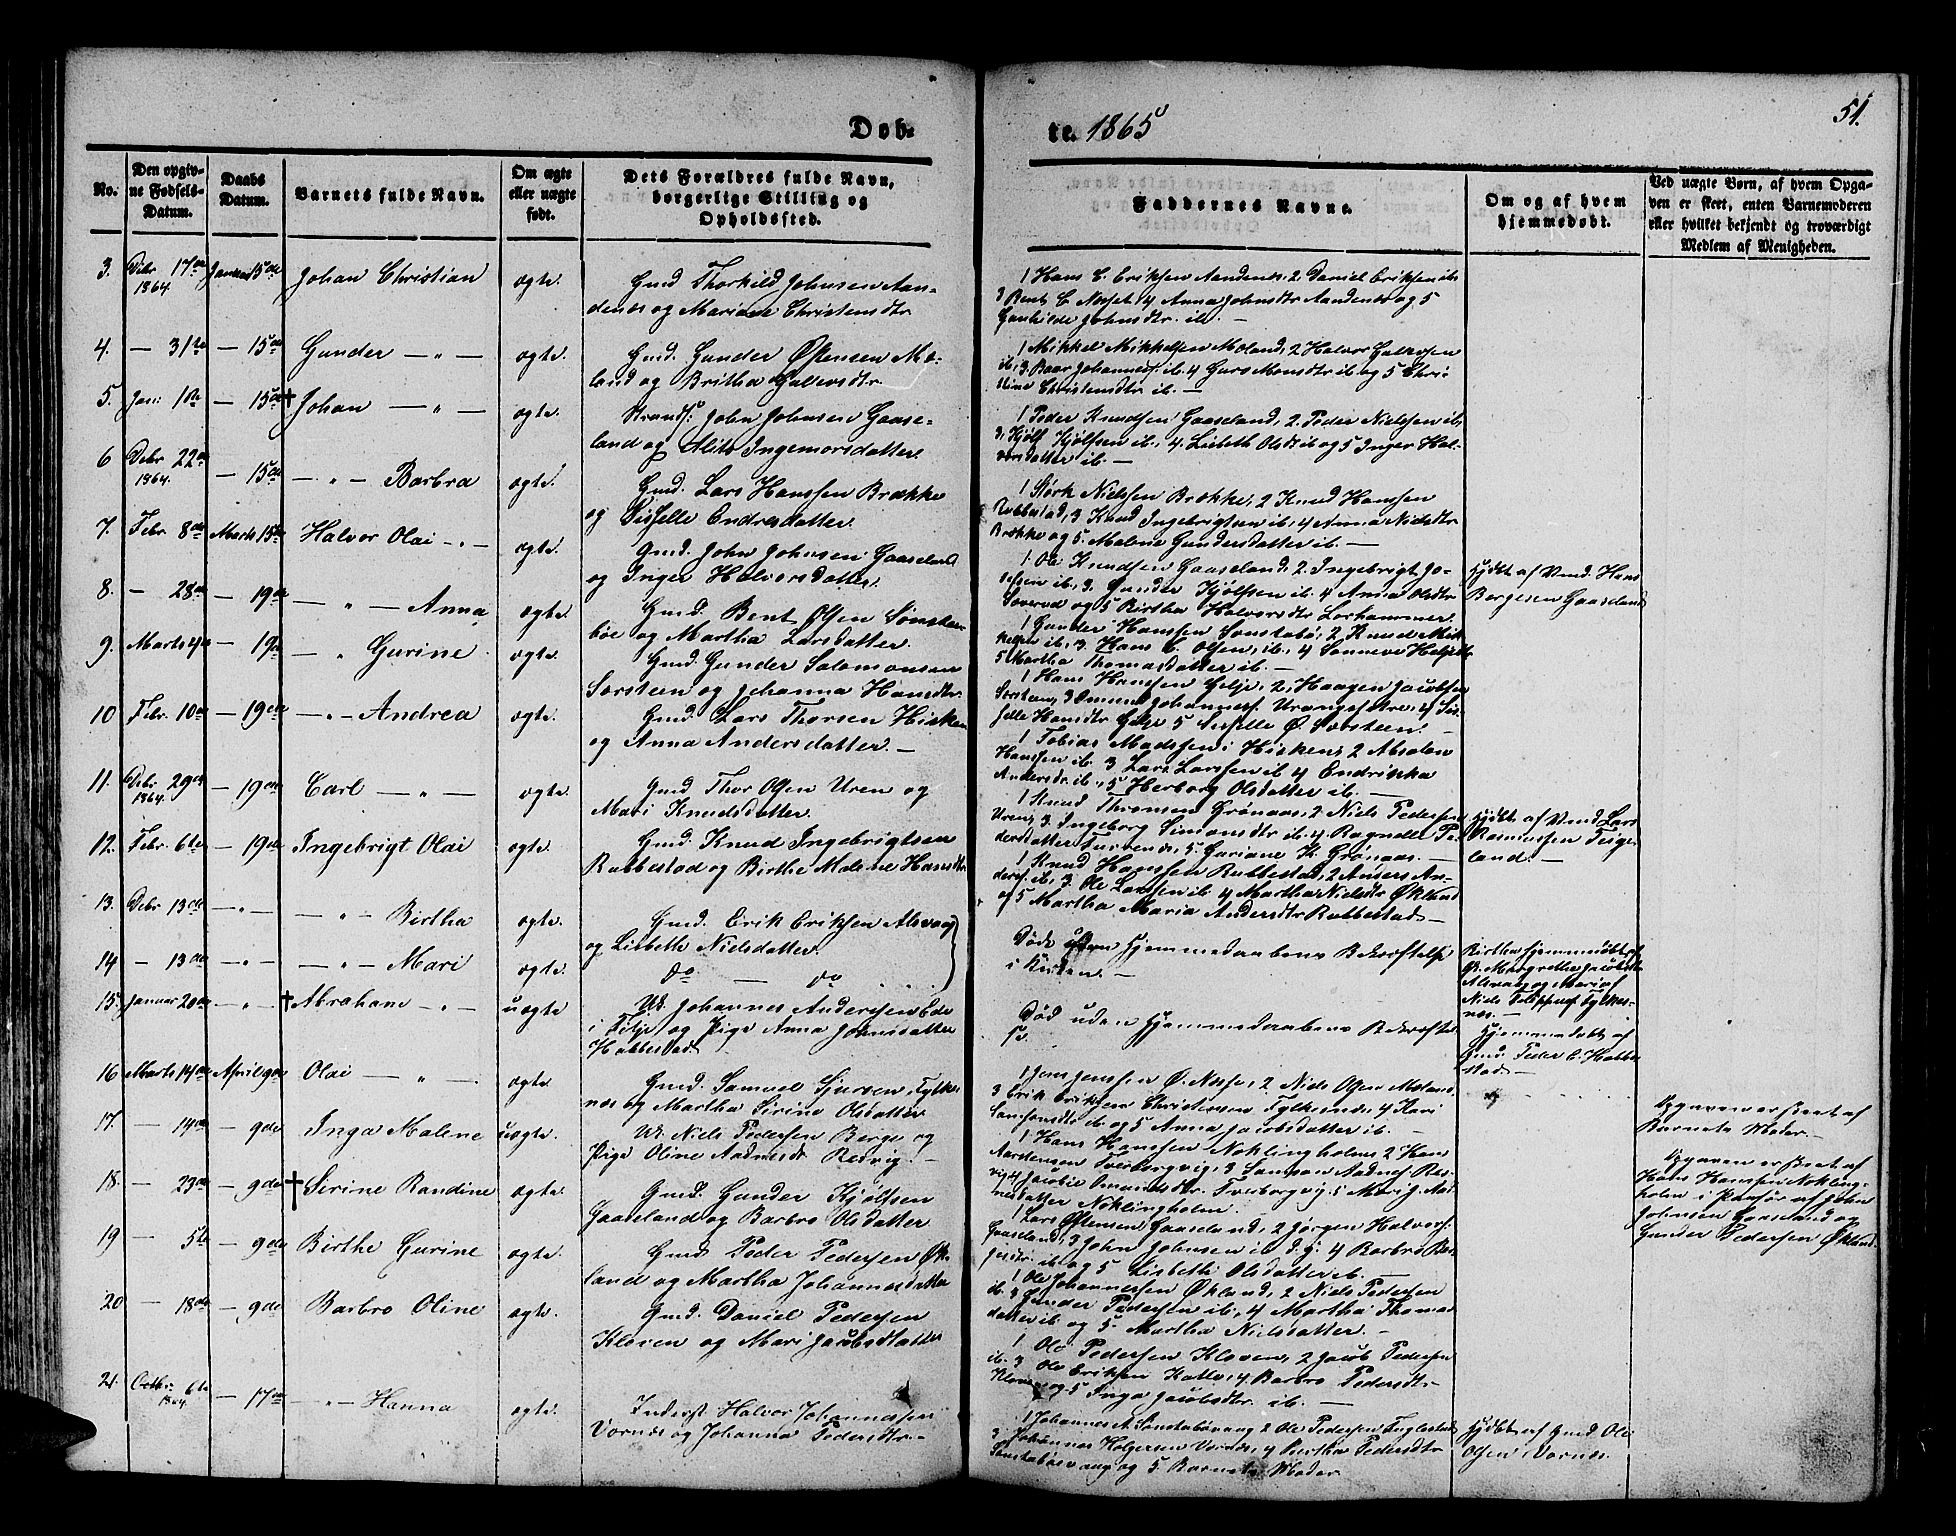 Døb-
te. 1865
51.
No.
Den opgiv-
ne Fødsels-
Datum.
Daabs
Datum.
Barnets fulde Navn.
Om ægte
eller uægte
født.
Dets Forældres fulde Navn,
borgerlige Stilling og
Opholdssted.
Faddernes Navne.
Om og af hvem
hjemmedøbt.
Ved uægte Børn, af hvem Opga-
ven er skeet, enten Barnemoderen
eller hvilket bekjendt og troværdigt
Medlem af Menigheden.
3. Debr 17de Januar 15de Johan Christian ægte. Gmd Thorkild Johnsen Aan-
1864.
denæs og Mariane Christensdtr
1 Hans C. Eriksen Aandenæs, 2 Daniel Eriksen ib.
3 Bent C Næset, 4 Anna Johnsdtr Aandenæs og 5
Gunhilde Johnsdtr. ib. —
4. — 31te — 15de Gunder — „ — ægte. Gmd. Gunder Østensen Mo-
land og Britha Halvorsdtr
1 Mikkel Mikkelsen Moland, 2 Halvor
ib, 3. Baar Johannes. ib. 4 Guro Monsdtr ib og 5 Chri-
stine Christensdtr ib. —
5. Jan: 1ste — 15de † Johan — „ — ægte. Strands. John Johnsen Gaase-
land og Ingemorsdatter.
1 Peder Knudsen Gaaseland, 2. Peder Nielsen ib.
3, Kjølf Kjølfsen ib., 4. Lisbeth Olsdtr ib og 5 Inger Hal-
vorsdatter ib. —
6 Debr 22de — 15de — „ — Barbra ægte. Gmd. Lars Hanssen Brække
1864.
og Sisselle Endresdatter.
1 Størk Nielsen Brække, 2 Knud Hanssen
Rubbestad, 3 Knud Ingebrigtsen ib, 4 Anna Nielsdtr
Brække og 5. Malene Gundersdatter ib. —
7. Febr 8de Marts 15de Halvor Olai — „ — ægte. Gmd. John Johnsen Gaaseland
og Inger Halvorsdatter.
1. Ole Knudsen Gaaseland, 2. Ingebrigt Jo-
sefsen ib., 3. Gunder Kjølfsen ib. 4 Anna Olsdtr
og 5 Birtha Halvorsdtr
Hjdbt af Gmd. Hans
Børgesen Gaaseland
8. — 28de — 19de — „ — Anna ægte. Gmd. Bent Olsen Sønsta-
bøe og Martha Larsdatter.
1 Gunder Hanssen Sønstabø, 2 Knud Mik-
kelsen ib, 3. Hans C. Olsen, ib., 4 Sønneve
5 Martha Thomasdatter ib. —
9. Marts 4de — 19de — „ Gurine ægte. Gmd. Gunder Salomonsen
Sørsteen og Johanna Hansdtr
1 Hans Hanssen Gilje, 2, Haagen Jacobsen
Sørsteen, 3 Omund Johannes. Vrangsætre, 4 Sis-
selle Hansdtr Gilje 5 Sisselle Ø. Sørsteen. —
10 Febr. 10de — 19de — „ — Andrea ægte. Gmd. Lars Thorsen Hisken
og Anna Andersdatter. —
1 Tobias Madssen, Hisken, 2 Absalon
Hanssen ib. 3 Lars Larssen ib 4 Endriska
Andersdtr ib., 5 Herborg Olsdatter ib. —
11. Debr 29de — 19de Carl — „ — ægte. Gmd Thor Olsen Uren og
1864.
Mari Knudsdatter.
1 Knud Thronsen Grønaas, 2 Niels Pedersen
Uren, 3. Ingeborg Simonsdtr ib. 4. Ragnelle Pe-
dersdatter, 5. Guriane K. Grønaas. —
Hjdbt af Gmd Lars
Rasmussen Teige-
land. —
12. Febr. 6te — 19de Ingebrigt Olai ægte. Gmd. Knud Ingebrigtsen
Rubbestad og Birthe Malene Hansdtr
1 Knud Hanssen Rubbestad, 2 Anders An-
ders. ib., 3. Ole Larssen ib 4 Martha Nielsdtr Økland
og 5 Martha Maria Andersdtr Rubbestad. —
13. Debr 13de — „ — — „ — Birtha ægte. Gmd. Erik Eriksen Alsvaag
og Lisbeth Nielsdatter.
Døde uden Hjemmedaabens Bekræftelse
i Kirken. —
Birtha hjemmedøbt af
Margretha Jacobsdtr
Alsvaag og Mari af
Niels Filippus. Fylkes-
næs. —
14 — 13de — „ — — „ — Mari ægte. do — do
15. Januar 20de — „ — † Abraham — „ — uægte Uk. Johannes Anderssen Ede
i Tilje og Pige Anna Johnsdatter
Habbestad
Død uden Hjemmedaabens Bekræftel-
se.
Hjemmedøbt af
Gmd. Peder C. Habbe-
stad —
16 Marts 14de April 9de Olai — „ — . ægte Gmd. Samuel Sjursen, Fylkes-
næs og Martha Sirine Olsdatter
1 Jens Jenssen Ø. Næsse, 2 Niels Olsen Moland,
3 Erik Eriksen Christensen Fylkesnæs, 4 Kari
Samsonsdtr ib. og 5 Anna Jacobsdatter ib. —
17. — 14de — 9de Inga Malene uægte. Uk. Niels Pedersen Berge og
Pige Oline Aadnesdt Røsvig. —
1 Hans Hanssen Nøklingholm, 2 Hans
Aardensen Tverborgvig, 3 Samson Aadnes. Røs-
vig 4 Jacobie Omundsdtr. Tverborgvig, 5 Marig. Aad-
nesdatter Nøklingholm. —
Opgaven er skeet af
Barnets Moder. —
18. — 23de — 9de † Sirine Randine ægte Gmd. Gunder Kjølfsen
Gaaseland og Barbro Olsdatter
1 Lars Østensen Gaaseland, 2 Jørgen Halvors.
Gaaseland, 3 John Johnsen ib d. y. 4 Barbro Bør-
gesdtr. ib og 5 Lisbeth Olsdatter ib. —
Opgaven er skeet af
Hans Hanssen Nøkling-
holm i Paahør af John
Johnsen Gaaseland og
Gunder Pedersen Økland.
19 — 5te — 9de Birthe Gurine ægte. Gmd. Peder Pedersen Øk-
land og Martha Johannesdatter
1 Ole Johannessen Økland, 2 Niels Pedersen
ib. 3 Gunder Pedersen ib., 4 Martha Thomas-
datter ib og 5. Martha Nielsdatter. —
20 — 18de — 9de Barbro Oline ægte. Gmd. Daniel Pedersen
Kloven og Mari Jacobsdatter
1 Ole Pedersen Kloven, 2 Jacob Pedersen
ib. 3 Ole Eriksen, 4 Barbro Pedersdtr
Kloven og 5 Inga Jacobsdtr ib. —
21. Octbr. 6te — 17de — „ — Hanna ægte. Inderst Halvor Johannessen
1864.
Vornæs og Johanna Pedersdtr. —
1 Johannes A. Sønstabøvaag 2 Ole Pedersen Fuglestad
3 Johannes Holgersen Vornæs, 4 Bertha Pedersdtr
Sønstabøvaag og 5 Barnets Moder
Hjdbt af Gmd Ole
Olsen, Vornæs.